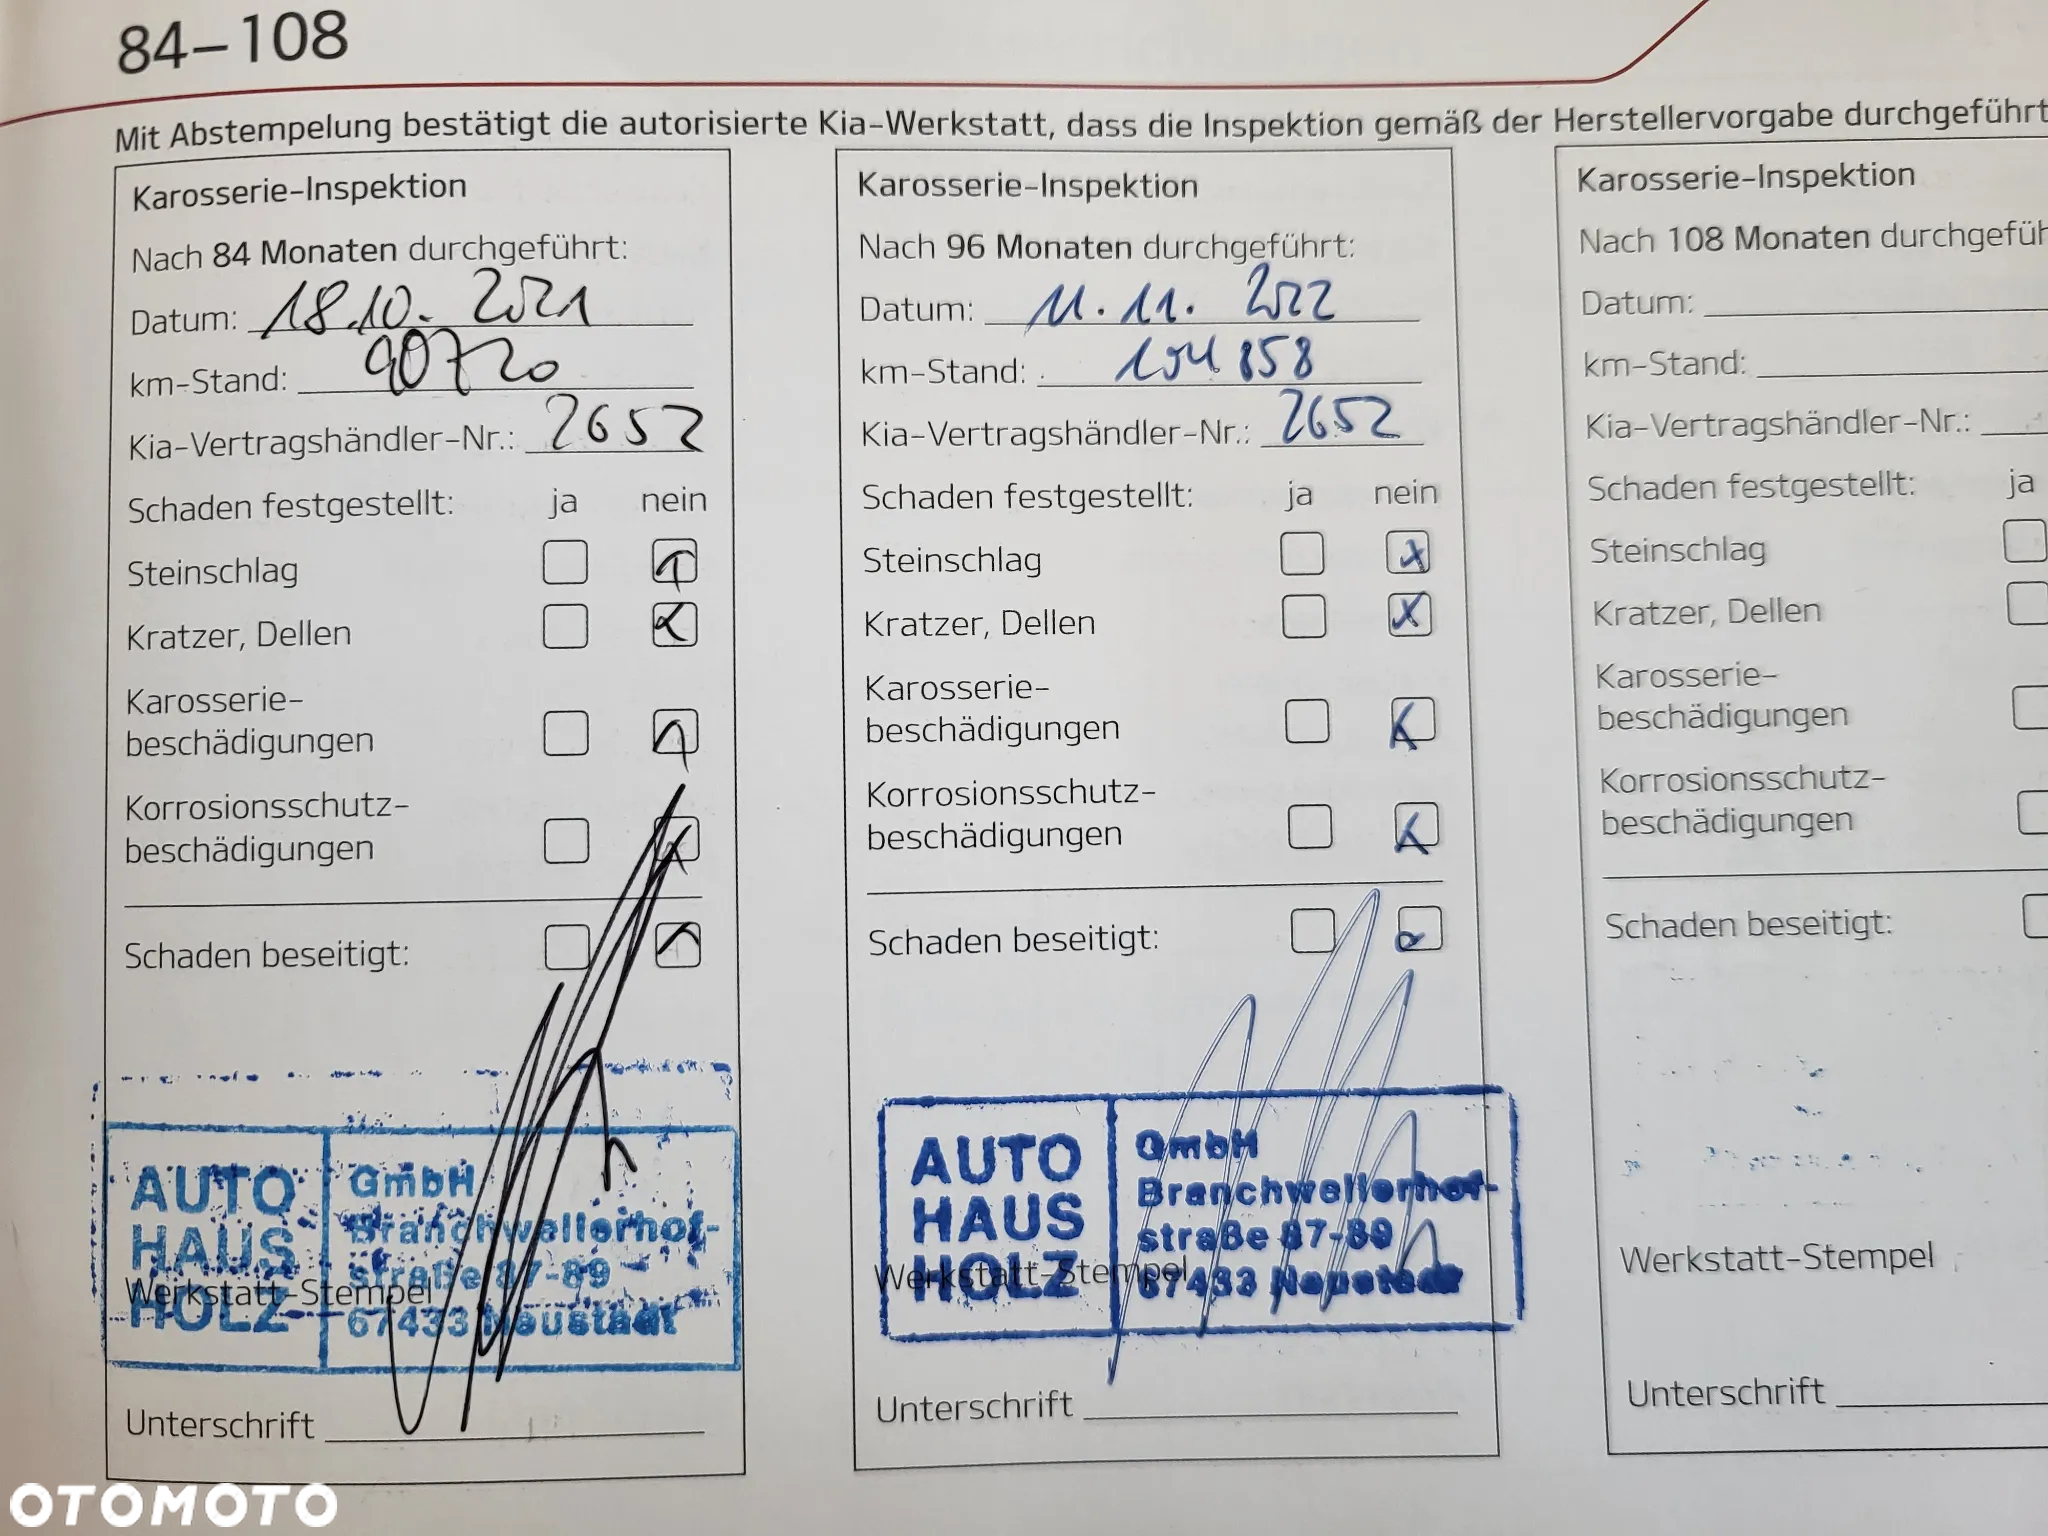 84–108
Mit Abstempelung bestätigt die autorisierte Kia-Werkstatt, dass die Inspektion gemäß der Herstellervorgabe durchgeführt
Karosserie-Inspektion
Nach 84 Monaten durchgeführt:
Datum: 18.10. 2021
km-Stand: 90720
Kia-Vertragshändler-Nr.: 2652
Schaden festgestellt: ja nein
Steinschlag
Kratzer, Dellen
Karosserie-
beschädigungen
Korrosionsschutz-
beschädigungen
Schaden beseitigt:
AUTO
HAUS
HOLZ
GmbH
Branchweilerhof-
straße 87-89
67433 Neustadt
Werkstatt-Stempel
Unterschrift
Karosserie-Inspektion
Nach 96 Monaten durchgeführt:
Datum: 11.11. 2022
km-Stand: 104 858
Kia-Vertragshändler-Nr.: 2652
Schaden festgestellt: ja nein
Steinschlag
Kratzer, Dellen
Karosserie-
beschädigungen
Korrosionsschutz-
beschädigungen
Schaden beseitigt:
AUTO
HAUS
HOLZ
GmbH
Branchweilerhof-
straße 87-89
67433 Neustadt
Werkstatt-Stempel
Unterschrift
Karosserie-Inspektion
Nach 108 Monaten durchgefüh
Datum:
km-Stand:
Kia-Vertragshändler-Nr.:
Schaden festgestellt: ja
Steinschlag
Kratzer, Dellen
Karosserie-
beschädigungen
Korrosionsschutz-
beschädigungen
Schaden beseitigt:
Werkstatt-Stempel
Unterschrift
OTOMOTO